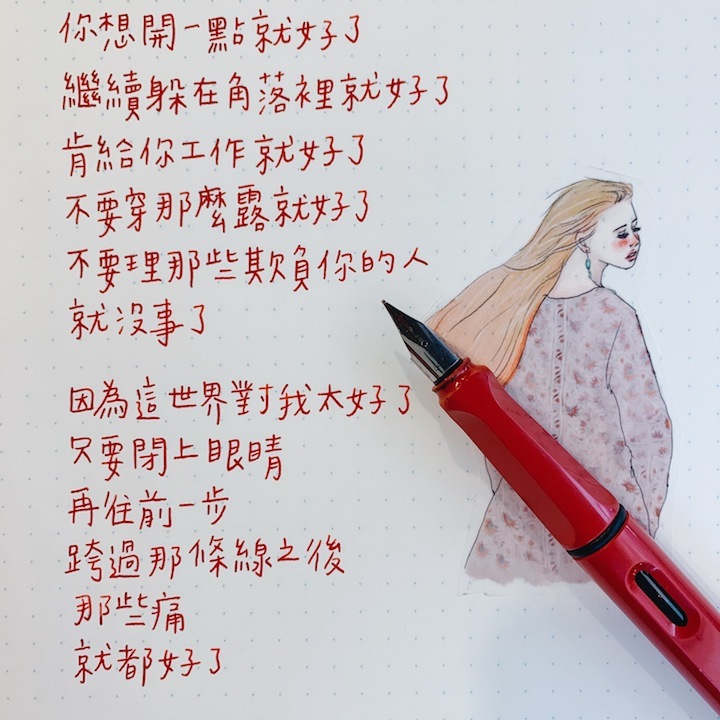 你想開一點就好了
繼續躲在角落裡就好了
肯給你工作就好了
不要穿那麼露就好了
不要理那些欺負你的人
就沒事了
因為這世界對我太好了
只要閉上眼睛
再往前一步
跨過那條線之後
那些痛
就都好了